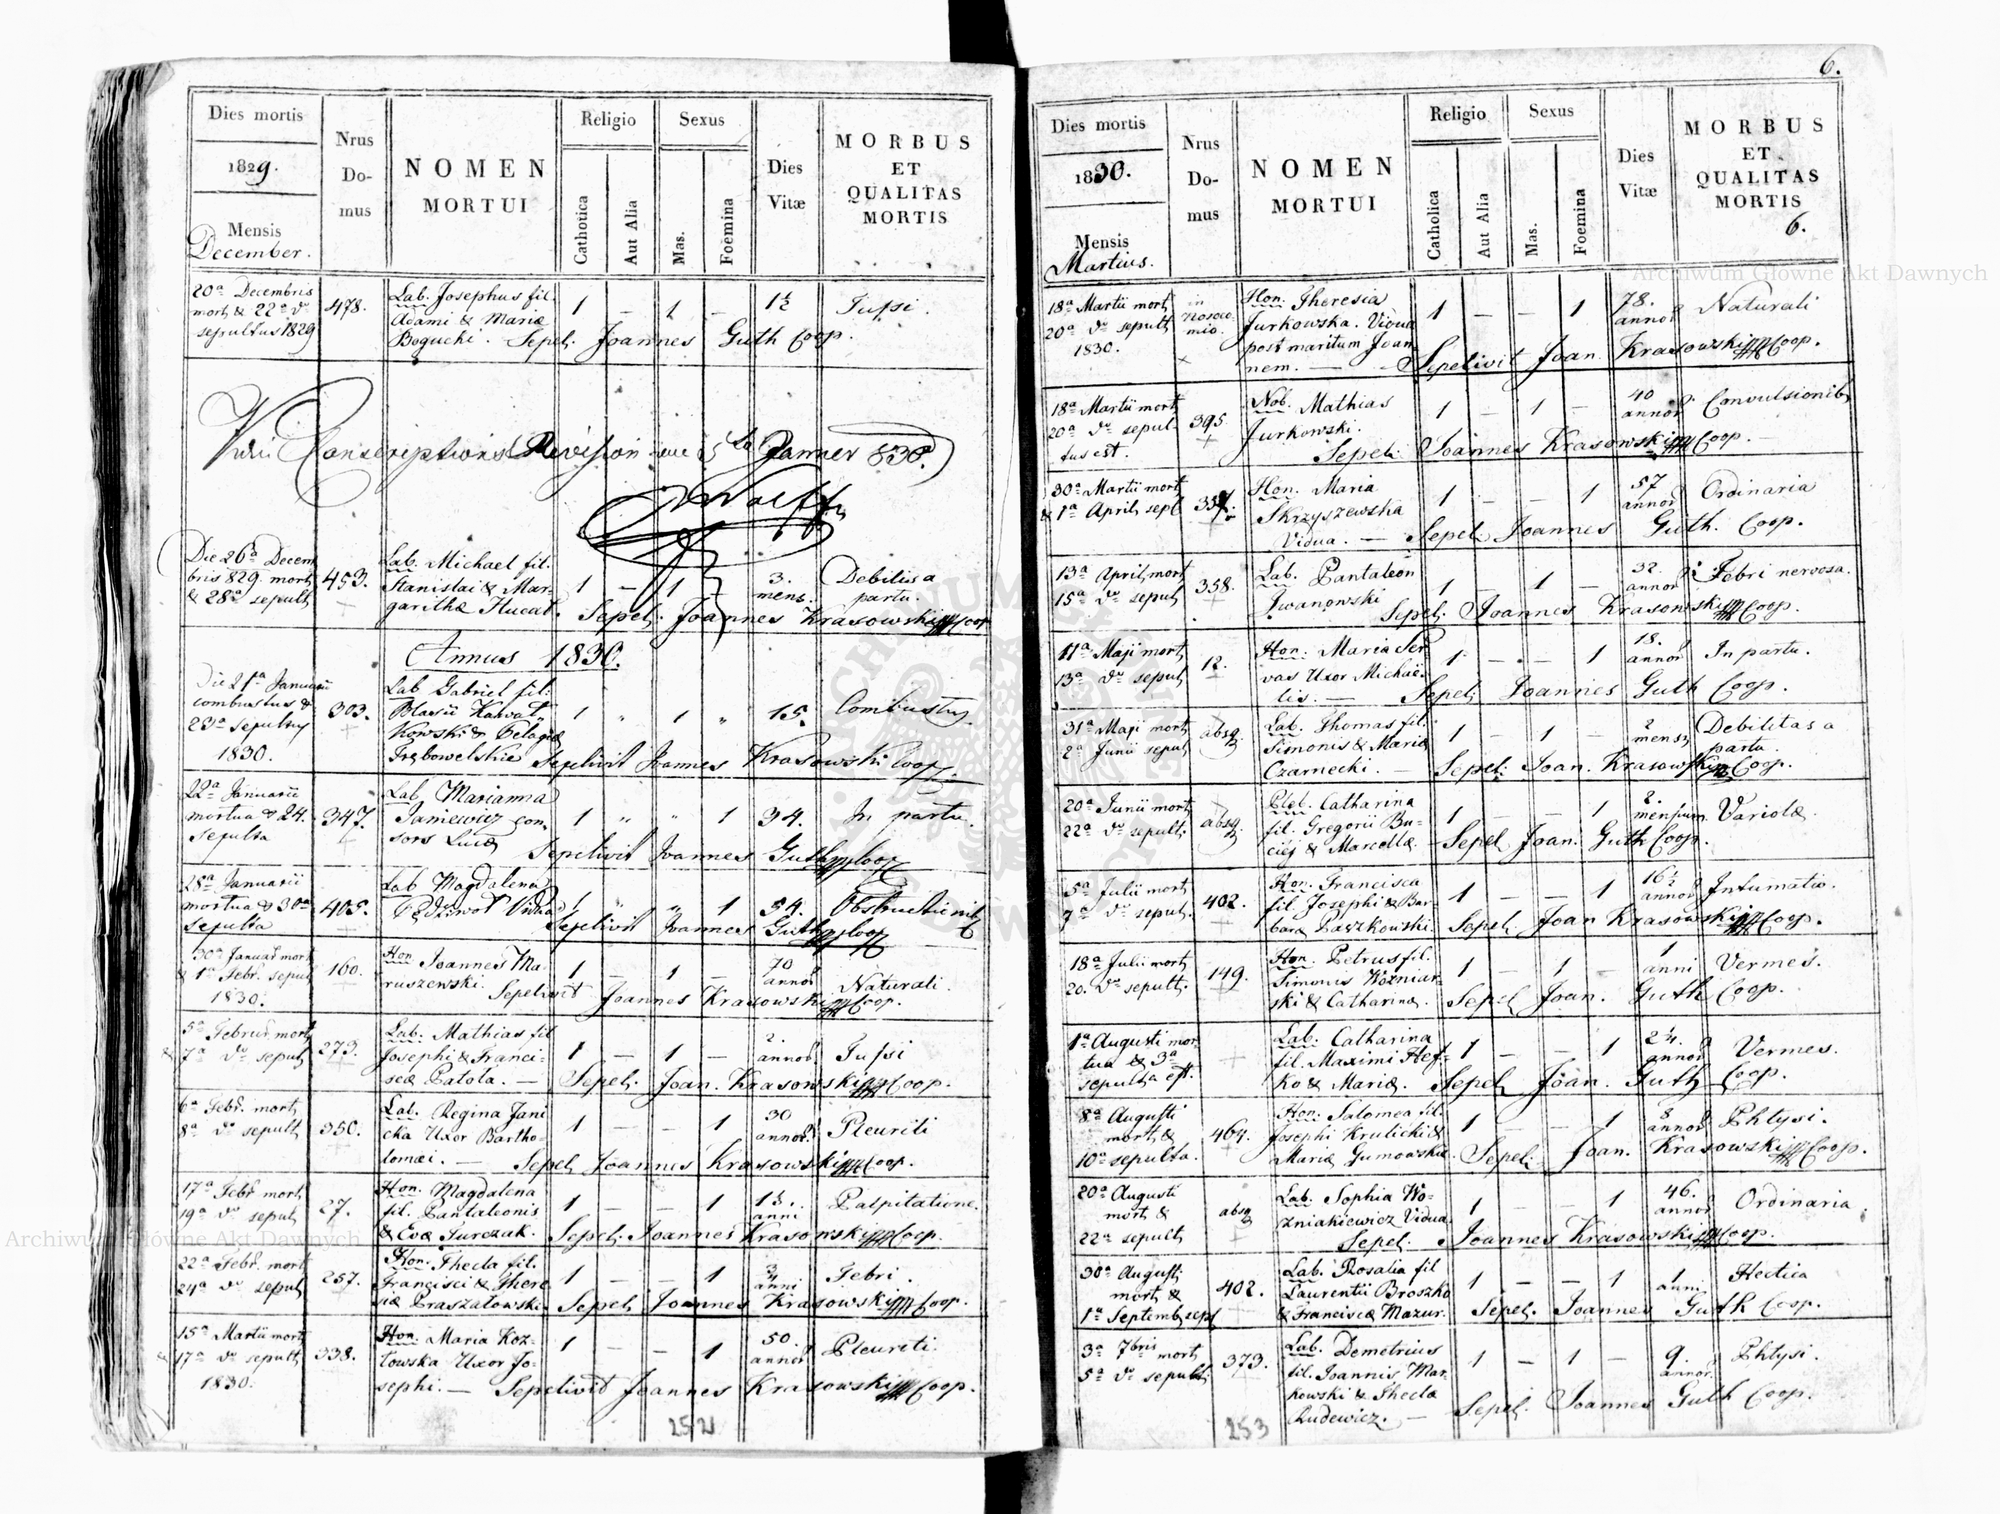 Dies mortis
1829.
Mensis
December.
Nrus
Do-
mus
NOMEN
MORTUI
Religio
Catholica
Aut Alia
Sexus
Mas.
Foemina
Dies
Vitæ
MORBUS
ET
QUALITAS
MORTIS
20a Decembris
mort & 22a do
sepultus 1829
478.
Lab. Josephus fil.
Adami & Mariæ
Bogucki. Sepel. Joannes Guth Coop.
1 — 1 —
1½
Tussi.
Vidi Conscriptions Revision am 5ten Janner 830.
Wolff
Die 26a Decem
bris 829. mort
& 28a sepult
453.
Lab. Michael fil.
Stanislai & Mar-
garithæ Hucat. Sepel. Joannes Krasowski Coop
1 — 1
3.
mens.
Debilitas a
partu.
Annus 1830.
Die 21a Januarii
combustus &
23a sepultus
1830.
303.
Lab Gabriel fil:
Blasii Karwat-
kowski & Pelagiæ
Trębowelskie Sepelivit Joannes Krasowski Coop.
1 " 1 "
15.
Combustus
22a Januarii
mortua & 24.
Sepulta
347.
Lab Marianna
Janiewicz con-
sors Lucæ Sepelivit Joannes Guth Coop
1 " " 1
34.
In partu.
28a Januarii
mortua & 30a
sepulta
405.
Lab Magdalena
Vidua Sepelivit Joannes Guth Coop
1 " " 1
54.
30a Januar mort
& 1a Febr. sepult
1830.
160.
Hon Joannes Ma-
ruszewski. Sepelivit Joannes Krasowski Coop.
1 — 1 —
70
annor
Naturali.
5a Februar mort
& 7a do sepult
273.
Lab. Mathias fil
Josephi & Franci-
scæ Patola. — Sepel. Joan. Krasowski Coop.
1 — 1 —
2.
annor
Tussi
6a Febr. mort
8a do sepult
350.
Lab. Regina Jani
cka Uxor Bartho-
lomæi. — Sepel Joannes Krasowski Coop.
1 — — 1
30
annor.
Pleuriti
17a Febr mort
19a do sepult
27.
Hon. Magdalena
fil. Pantaleonis
& Evæ Turczak. Sepel. Joannes Krasowski Coop.
1 — — 1
anni
Palpitatione.
22a Febr. mort
24a do sepult
257.
Hon. Thecla fil.
Francisci & There
siæ Praszałowski Sepel Joannes Krasowski Coop.
1 — — 1
¾
anni
Febri.
15a Martii mort
& 17a do sepult
1830.
338.
Hon. Maria Koz-
łowska Uxor Jo-
sephi. — Sepelivit Joannes Krasowski Coop.
1 — — 1
50.
annor
Pleuriti.
252
6.
Dies mortis
1830.
Mensis
Martius.
Nrus
Do-
mus
NOMEN
MORTUI
Religio
Catholica
Aut Alia
Sexus
Mas.
Foemina
Dies
Vitæ
MORBUS
ET
QUALITAS
MORTIS
6.
18a Martii mort
20a do sepult
1830.
in
Nosoco
mio.
Hon. Theresia
Jurkowska. Vidua
post maritum Joan-
nem. — Sepelivit Joan. Krasowski Coop.
1 — — 1
78.
annor
Naturali
18a Martii mort
20a do sepul-
tus est.
395
Nob. Mathias
Jurkowski.
Sepel. Joannes Krasowski Coop.
1 — 1 —
40
annor
Convulsionib
30a Martii mort
& 1a April sept
Hon. Maria
Skrzyszewska
Vidua. — Sepel. Joannes Guth. Coop.
1 — — 1
57
annor
Ordinaria
13a April mort
15a do sepult
358.
Lab. Pantaleon
Iwanowski Sepel. Joannes Krasowski Coop.
1 — 1 —
32.
annor
Febri nervosa.
11a Maji mort
13a do sepult
12.
Hon. Maria Ser
vas Uxor Michae-
lis. — Sepel Joannes Guth Coop.
1 — — 1
18.
annor
In partu.
31a Maji mort
2a Junii sepult
absq
Lab. Thomas fil.
Simonis & Mariæ
Czarnecki. — Sepel. Joan. Krasowski Coop.
1 — 1 —
2
mens
Debilitas a
partu.
20a Junii mort
22a do sepult.
absq.
Pleb. Catharina
fil. Gregorii Bu-
ciej & Marcellæ. Sepel Joan. Guth Coop.
1 — — 1
2.
mensium.
Variolæ.
5a Julii mort
7a do sepult.
402.
Hon. Francisca
fil. Josephi & Bar-
baræ Paszkowski. Sepel Joan Krasowski Coop.
1 — — 1
16½
annor
Intumatio.
18a Julii mort
20. do sepult.
149.
Hon. Petrus fil.
Simonis Wozniar-
ski & Catharinæ. Sepel Joan. Guth Coop.
1 — 1 —
1
anni
Vermes.
1a Augusti mor-
tua & 3a
sepulta est.
Lab. Catharina
fil. Maximi Hef-
ko & Mariæ. Sepel Joan. Guth Coop.
1 — — 1
2¼.
annor
Vermes.
8a Augusti
mort &
10a sepulta.
464.
Hon. Salomea fil.
Josephi Krulicki &
Mariæ Gumowskæ Sepel. Joan. Krasowski Coop.
1 — — 1
8
annor
Phtysi.
20a Augusti
mort &
22a sepult
absq
Lab. Sophia Wo-
zniakiewicz Vidua
Sepel. Joannes Krasowski Coop.
1 — — 1
46.
annor
Ordinaria.
30a Augusti
mort &
1a Septemb sept
402.
Lab. Rosalia fil
Laurentii Broszko
& Franciscæ Mazur. Sepel. Joannes Guth Coop.
1 — — 1
1
anni
Hectica
3a 7bris mort
5a do sepult
373.
Lab. Demetrius
fil. Joannis Mar-
kowski & Theclæ
Ludewicz. — Sepel. Joannes Guth Coop.
1 — 1 —
9.
annor.
Phtysi.
253
Archiwum Główne Akt Dawnych
Archiwum Główne Akt Dawnych